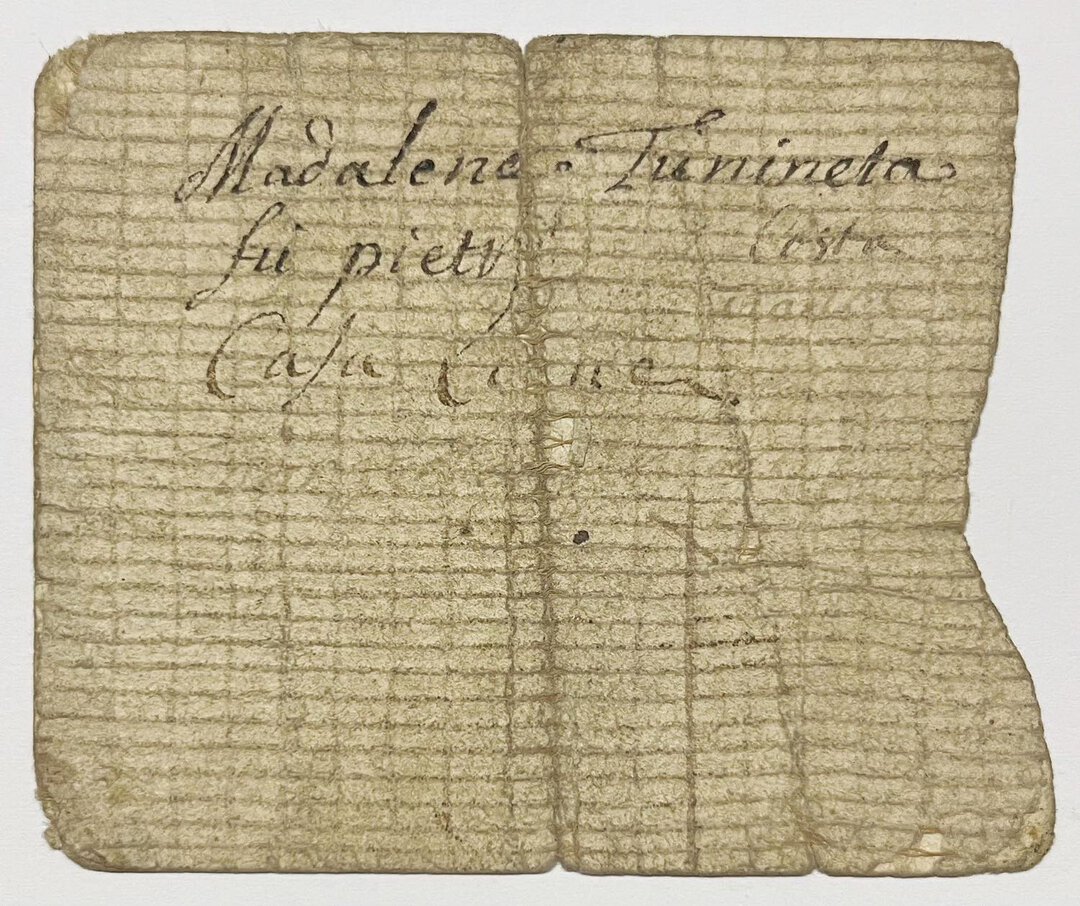 Madalene Tunineta
fu pietro Costa
Casa